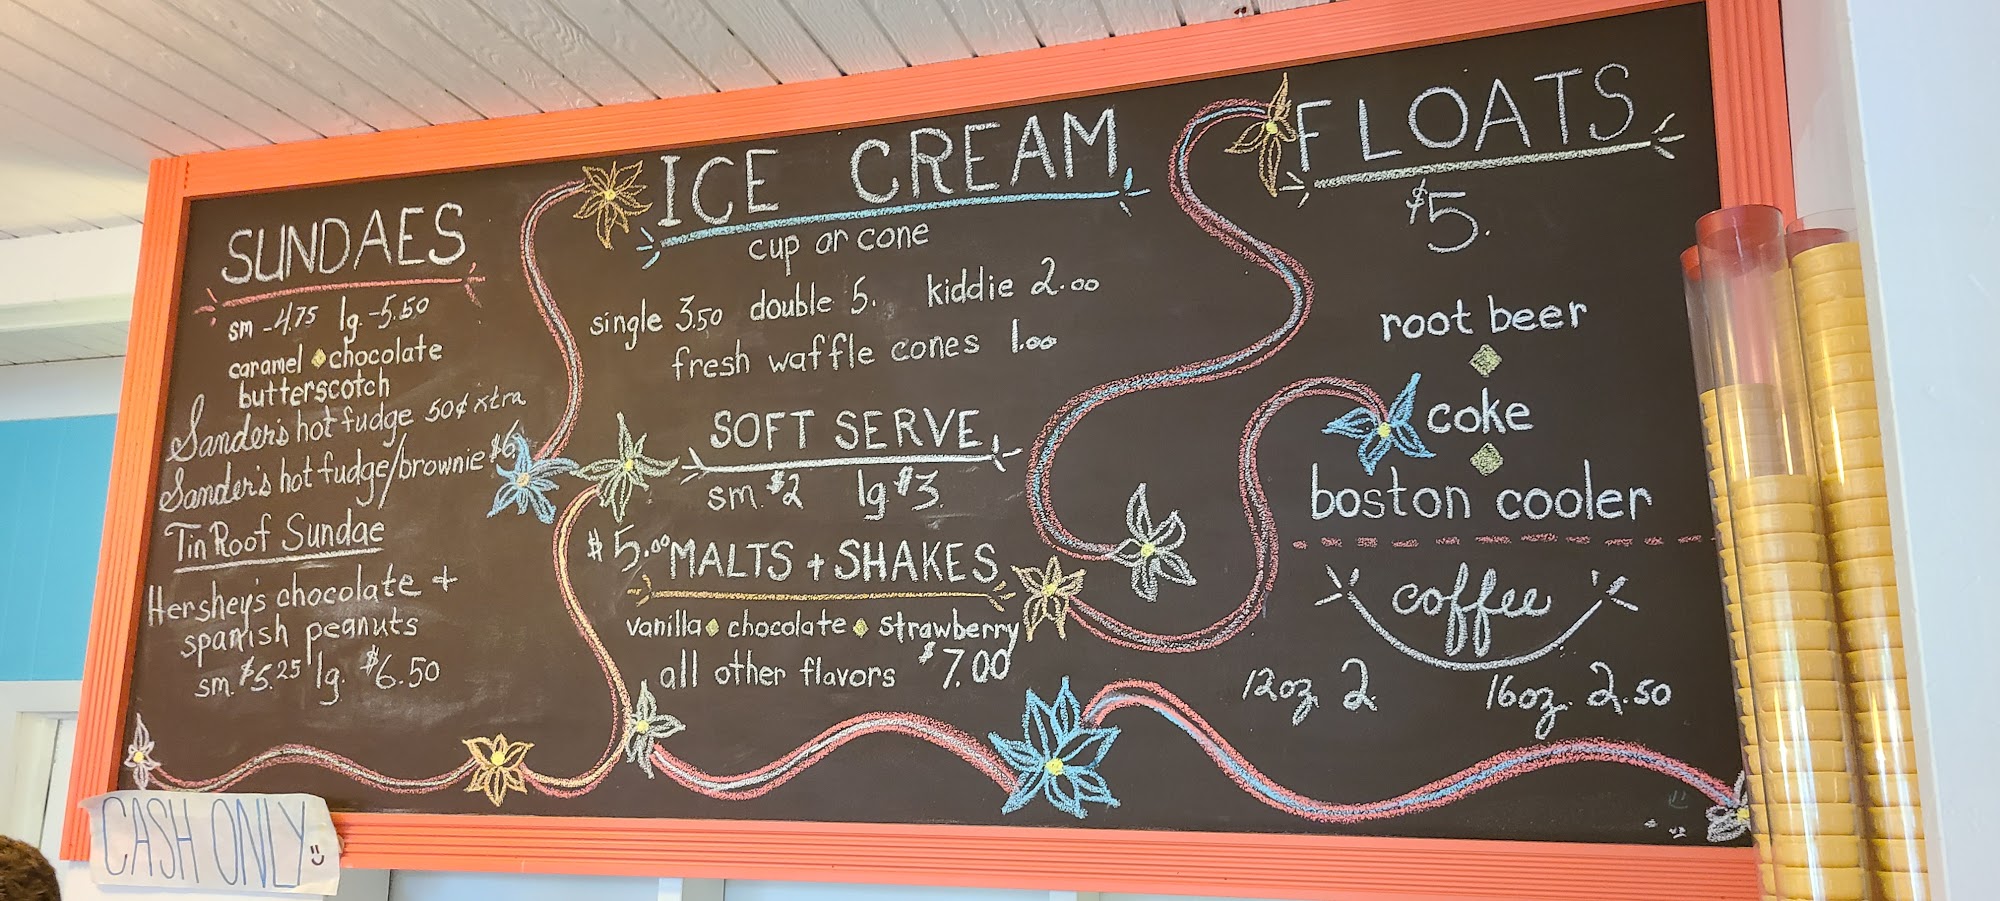 SUNDAES
sm - 4.75 lg. - 5.50
caramel chocolate
butterscotch
Sander's hot fudge 50¢ xtra
Sander's hot fudge/brownie $6
Tin Roof Sundae
Hershey's chocolate +
spanish peanuts
sm. $5.25 lg. $6.50
ICE CREAM
cup or cone
single 3.50 double 5. kiddie 2.00
fresh waffle cones 1.00
SOFT SERVE
sm. $2 lg $3.
$5.00 MALTS + SHAKES
vanilla chocolate strawberry
all other flavors $7.00
FLOATS
$5.
root beer
coke
boston cooler
coffee
12oz 2. 16oz. 2.50
CASH ONLY